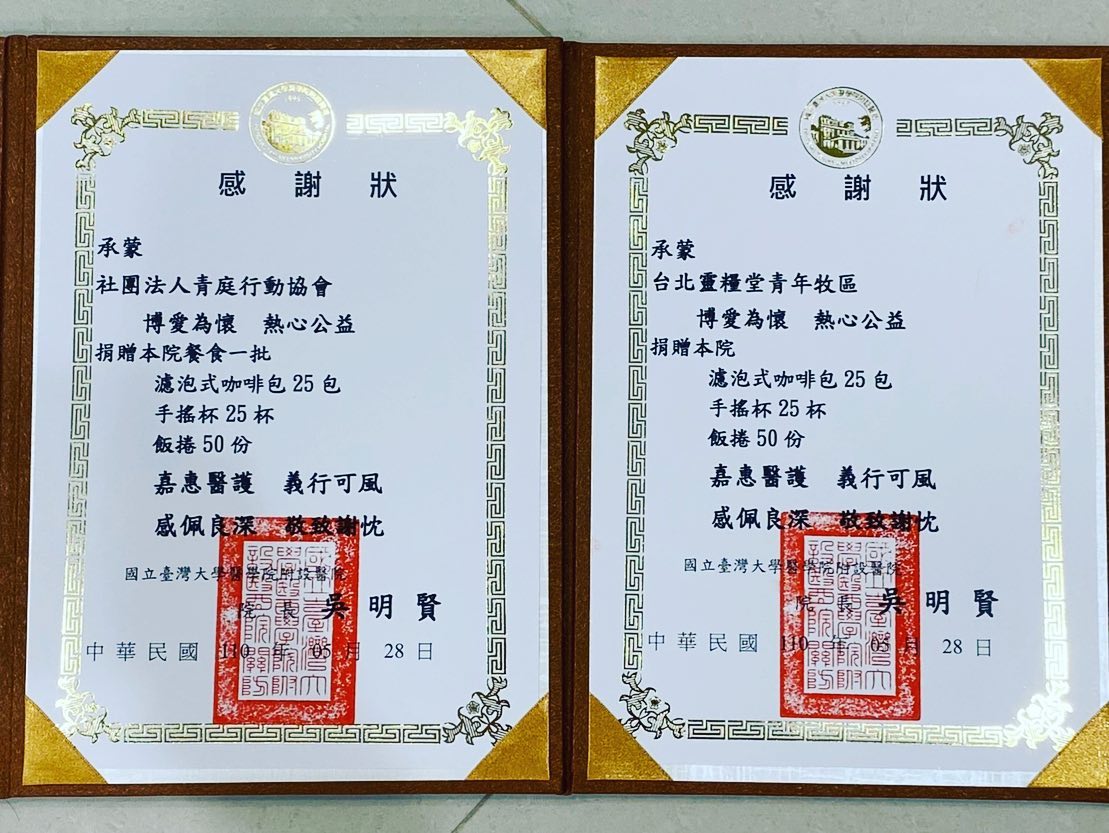 感謝狀
承蒙
社團法人青庭行動協會
博愛為懷 熱心公益
捐贈本院餐食一批
濾泡式咖啡包25包
手搖杯25杯
飯捲50份
嘉惠醫護 義行可風
感佩良深 敬致謝忱
國立臺灣大學醫學院附設醫院
院長 吳明賢
中華民國 110 年 05 月 28 日
感謝狀
承蒙
台北靈糧堂青年牧區
博愛為懷 熱心公益
捐贈本院
濾泡式咖啡包25包
手搖杯25杯
飯捲50份
嘉惠醫護 義行可風
感佩良深 敬致謝忱
國立臺灣大學醫學院附設醫院
院長 吳明賢
中華民國 110 年 05 月 28 日